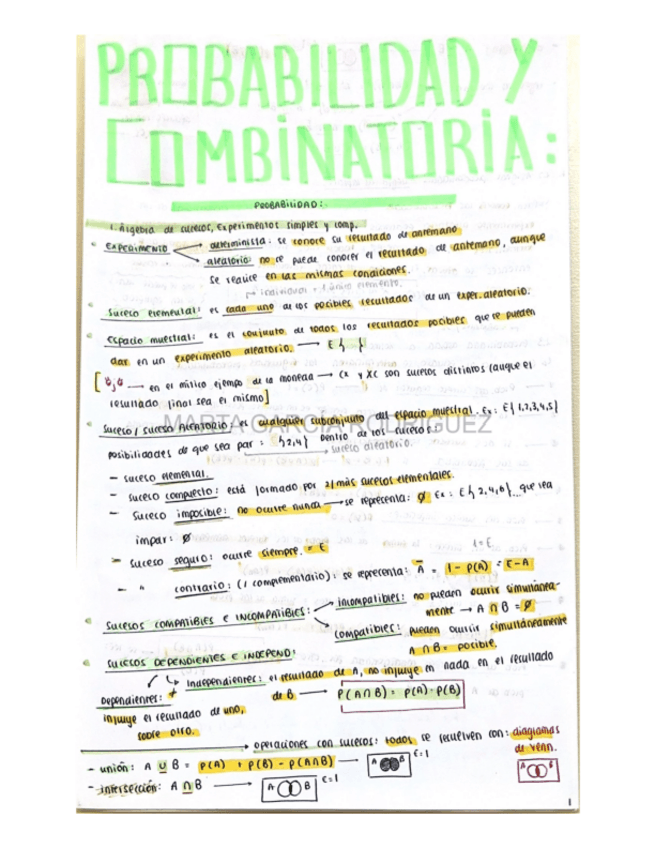 PROBABILIDAD Y
COMBINATORIA:
PROBABILIDAD:
1. Álgebra de sucesos, Experimentos simples y comp.
EXPERIMENTO → determinista: se conoce su resultado de antemano
→ aleatorio no se puede conocer el resultado de antemano, aunque
se realice en las mismas condiciones.
→ individual = 1 único elemento.
Suceso elemental: es cada uno de los posibles resultados de un exper. aleatorio.
Espacio muestral: es el conjunto de todos los resultados posibles que se pueden
dar en un experimento aleatorio. → E { }
en el mítico ejemplo de la moneda → CX y XC son sucesos distintos (aunque el
resultado final sea el mismo]
SUCESO / SUCESO ALEATORIO: es cualquier subconjunto del espacio muestral. Ex: E{1,2,3,4,5}
MARTA GARCÍA RODRÍGUEZ
Posibilidades de que sea par: {2,4} Dentro de los sucesos.
→ suceso aleatorio.
- suceso elemental.
- suceso compuesto: está formado por 2/más sucesos elementales.
- suceso imposible: no ocurre nunca → se representa: Ø Ex: E{2,4,6}... que sea
impar: Ø
- suceso seguro: ocurre siempre. = E
1=E
- " contrario: (/ complementario): se representa: Ā = 1 - P(A) = E-A
SUCESOS COMPATIBLES E INCOMPATIBLES: → Incompatibles: no pueden ocurrir simultánea-
mente → A ∩ B = Ø
→ compatibles: pueden ocurrir simultáneamente
A ∩ B = posible.
SUCESOS DEPENDIENTES E INDEPEND:
→ Independientes: el resultado de A, no influye en nada en el resultado
de B → P(A∩B) = P(A)·P(B)
Dependientes:
influye el resultado de uno,
sobre otro.
→ operaciones con sucesos: todos se resuelven con: diagramas
de venn.
- unión: A ∪ B = P(A) + P(B) - P(A∩B) → A B E=1
A B
- intersección: A ∩ B → A B E=1
1